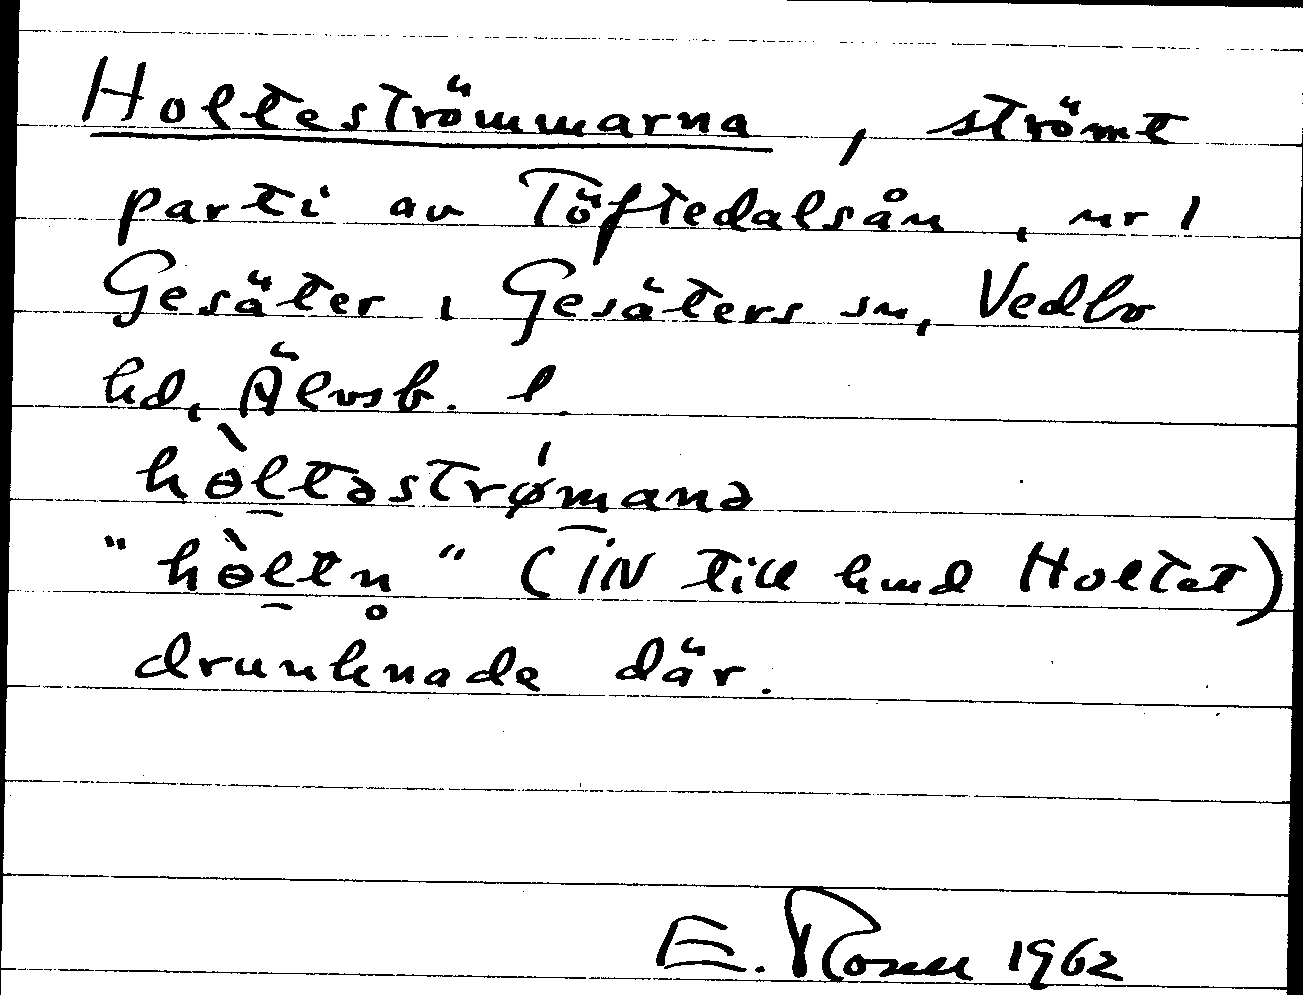 Holteströmmarna, strömt
parti av Töftedalsån, nr 1
Gesäter i Gesäters sn, Vedbo
hd, Älvsb. l.
hòl̠təstrǿmanə
"hòl̠tn̥" (IN till hmd Holtet)
drunknade där.
E. Rosell 1962